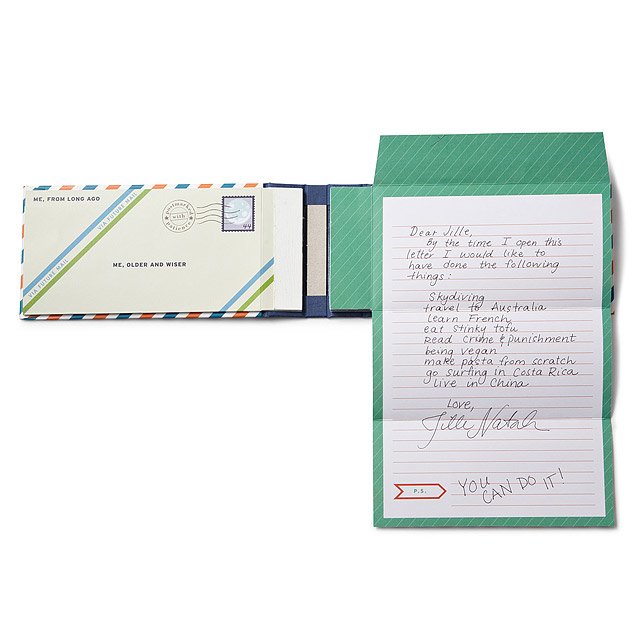 ME, FROM LONG AGO
VIA FUTURE MAIL
VIA FUTURE MAIL
postmarked
with
patience
44
ME, OLDER AND WISER
Dear Jille,
By the time I open this
letter I would like to
have done the following
things:
Skydiving
travel to Australia
learn French
eat stinky tofu
Read Crime & punishment
being vegan
make pasta from scratch
go surfing in Costa Rica
live in China
Love,
Jille Natalie
P.S.
YOU
CAN DO IT!